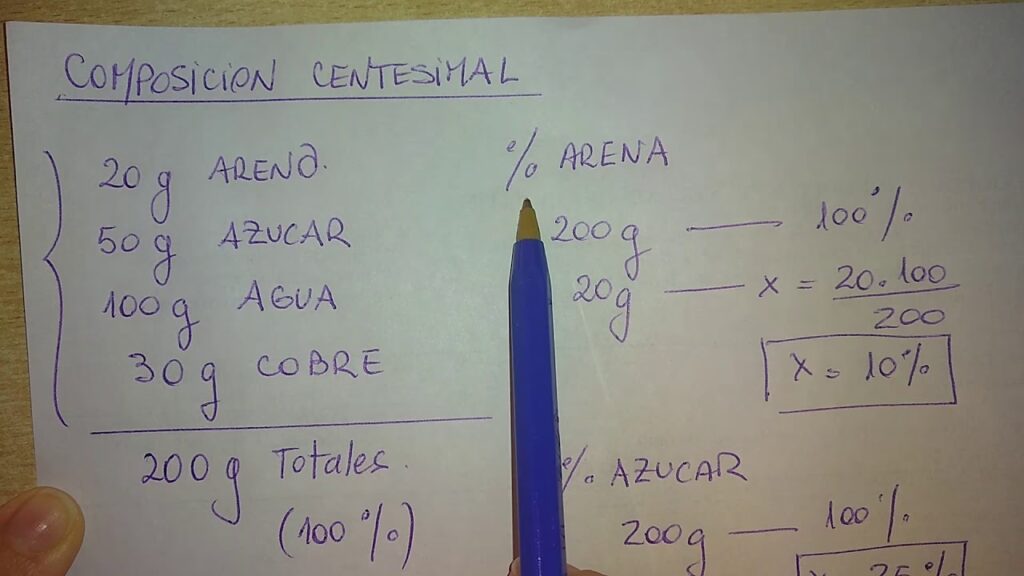 COMPOSICION CENTESIMAL
20 g ARENA.
50 g AZUCAR
100 g AGUA
30 g COBRE
200 g Totales.
(100 %)
% ARENA
200 g — 100 %
20 g — x = 20 · 100 / 200
x = 10 %
% AZUCAR
200 g — 100 %
x = 25 %